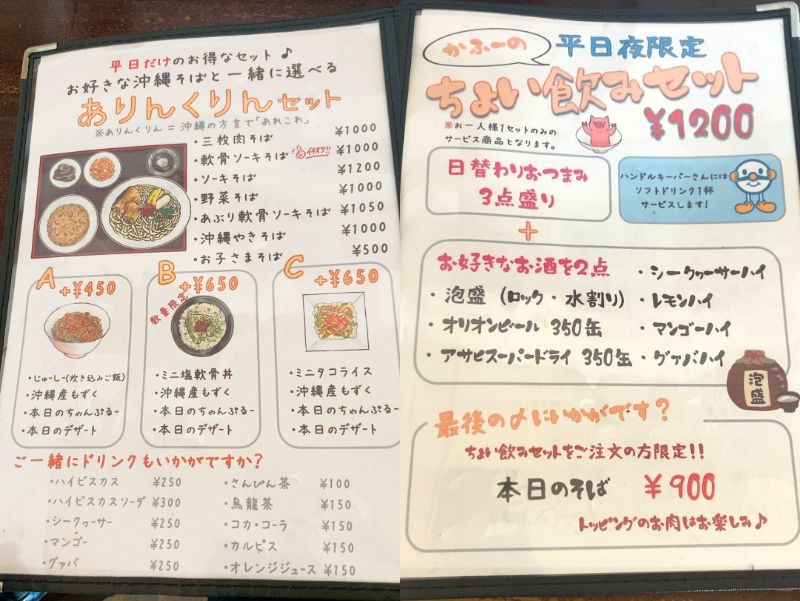 平日だけのお得なセット♪
お好きな沖縄そばと一緒に選べる
ありんくりんセット
※ありんくりん=沖縄の方言で「あれこれ」
・三枚肉そば ¥1000
・軟骨ソーキそば イチオシ!! ¥1000
・ソーキそば ¥1200
・野菜そば ¥1000
・あぶり軟骨ソーキそば ¥1050
・沖縄やきそば ¥1000
・お子さまそば ¥500
A +¥450
・じゅーしー(炊き込みご飯)
・沖縄産もずく
・本日のちゃんぷるー
・本日のデザート
B +¥650
数量限定
・ミニ塩軟骨丼
・沖縄産もずく
・本日のちゃんぷるー
・本日のデザート
C +¥650
・ミニタコライス
・沖縄産もずく
・本日のちゃんぷるー
・本日のデザート
ご一緒にドリンクもいかがですか?
・ハイビスカス ¥250
・ハイビスカスソーダ ¥300
・シークヮーサー ¥250
・マンゴー ¥250
・グァバ ¥250
・さんぴん茶 ¥100
・烏龍茶 ¥150
・コカ・コーラ ¥150
・カルピス ¥150
・オレンジジュース ¥150
かふーの
平日夜限定
ちょい飲みセット
※お一人様1セットのみの
サービス商品となります。
¥1200
日替わりおつまみ
3点盛り
ハンドルキーパーさんには
ソフトドリンク1杯
サービスします!
+
お好きなお酒を2点
・泡盛(ロック・水割り)
・オリオンビール 350缶
・アサヒスーパードライ 350缶
・シークヮーサーハイ
・レモンハイ
・マンゴーハイ
・グァバハイ
泡盛
最後の〆にいかがです?
ちょい飲みセットをご注文の方限定!!
本日のそば ¥900
トッピングのお肉はお楽しみ♪